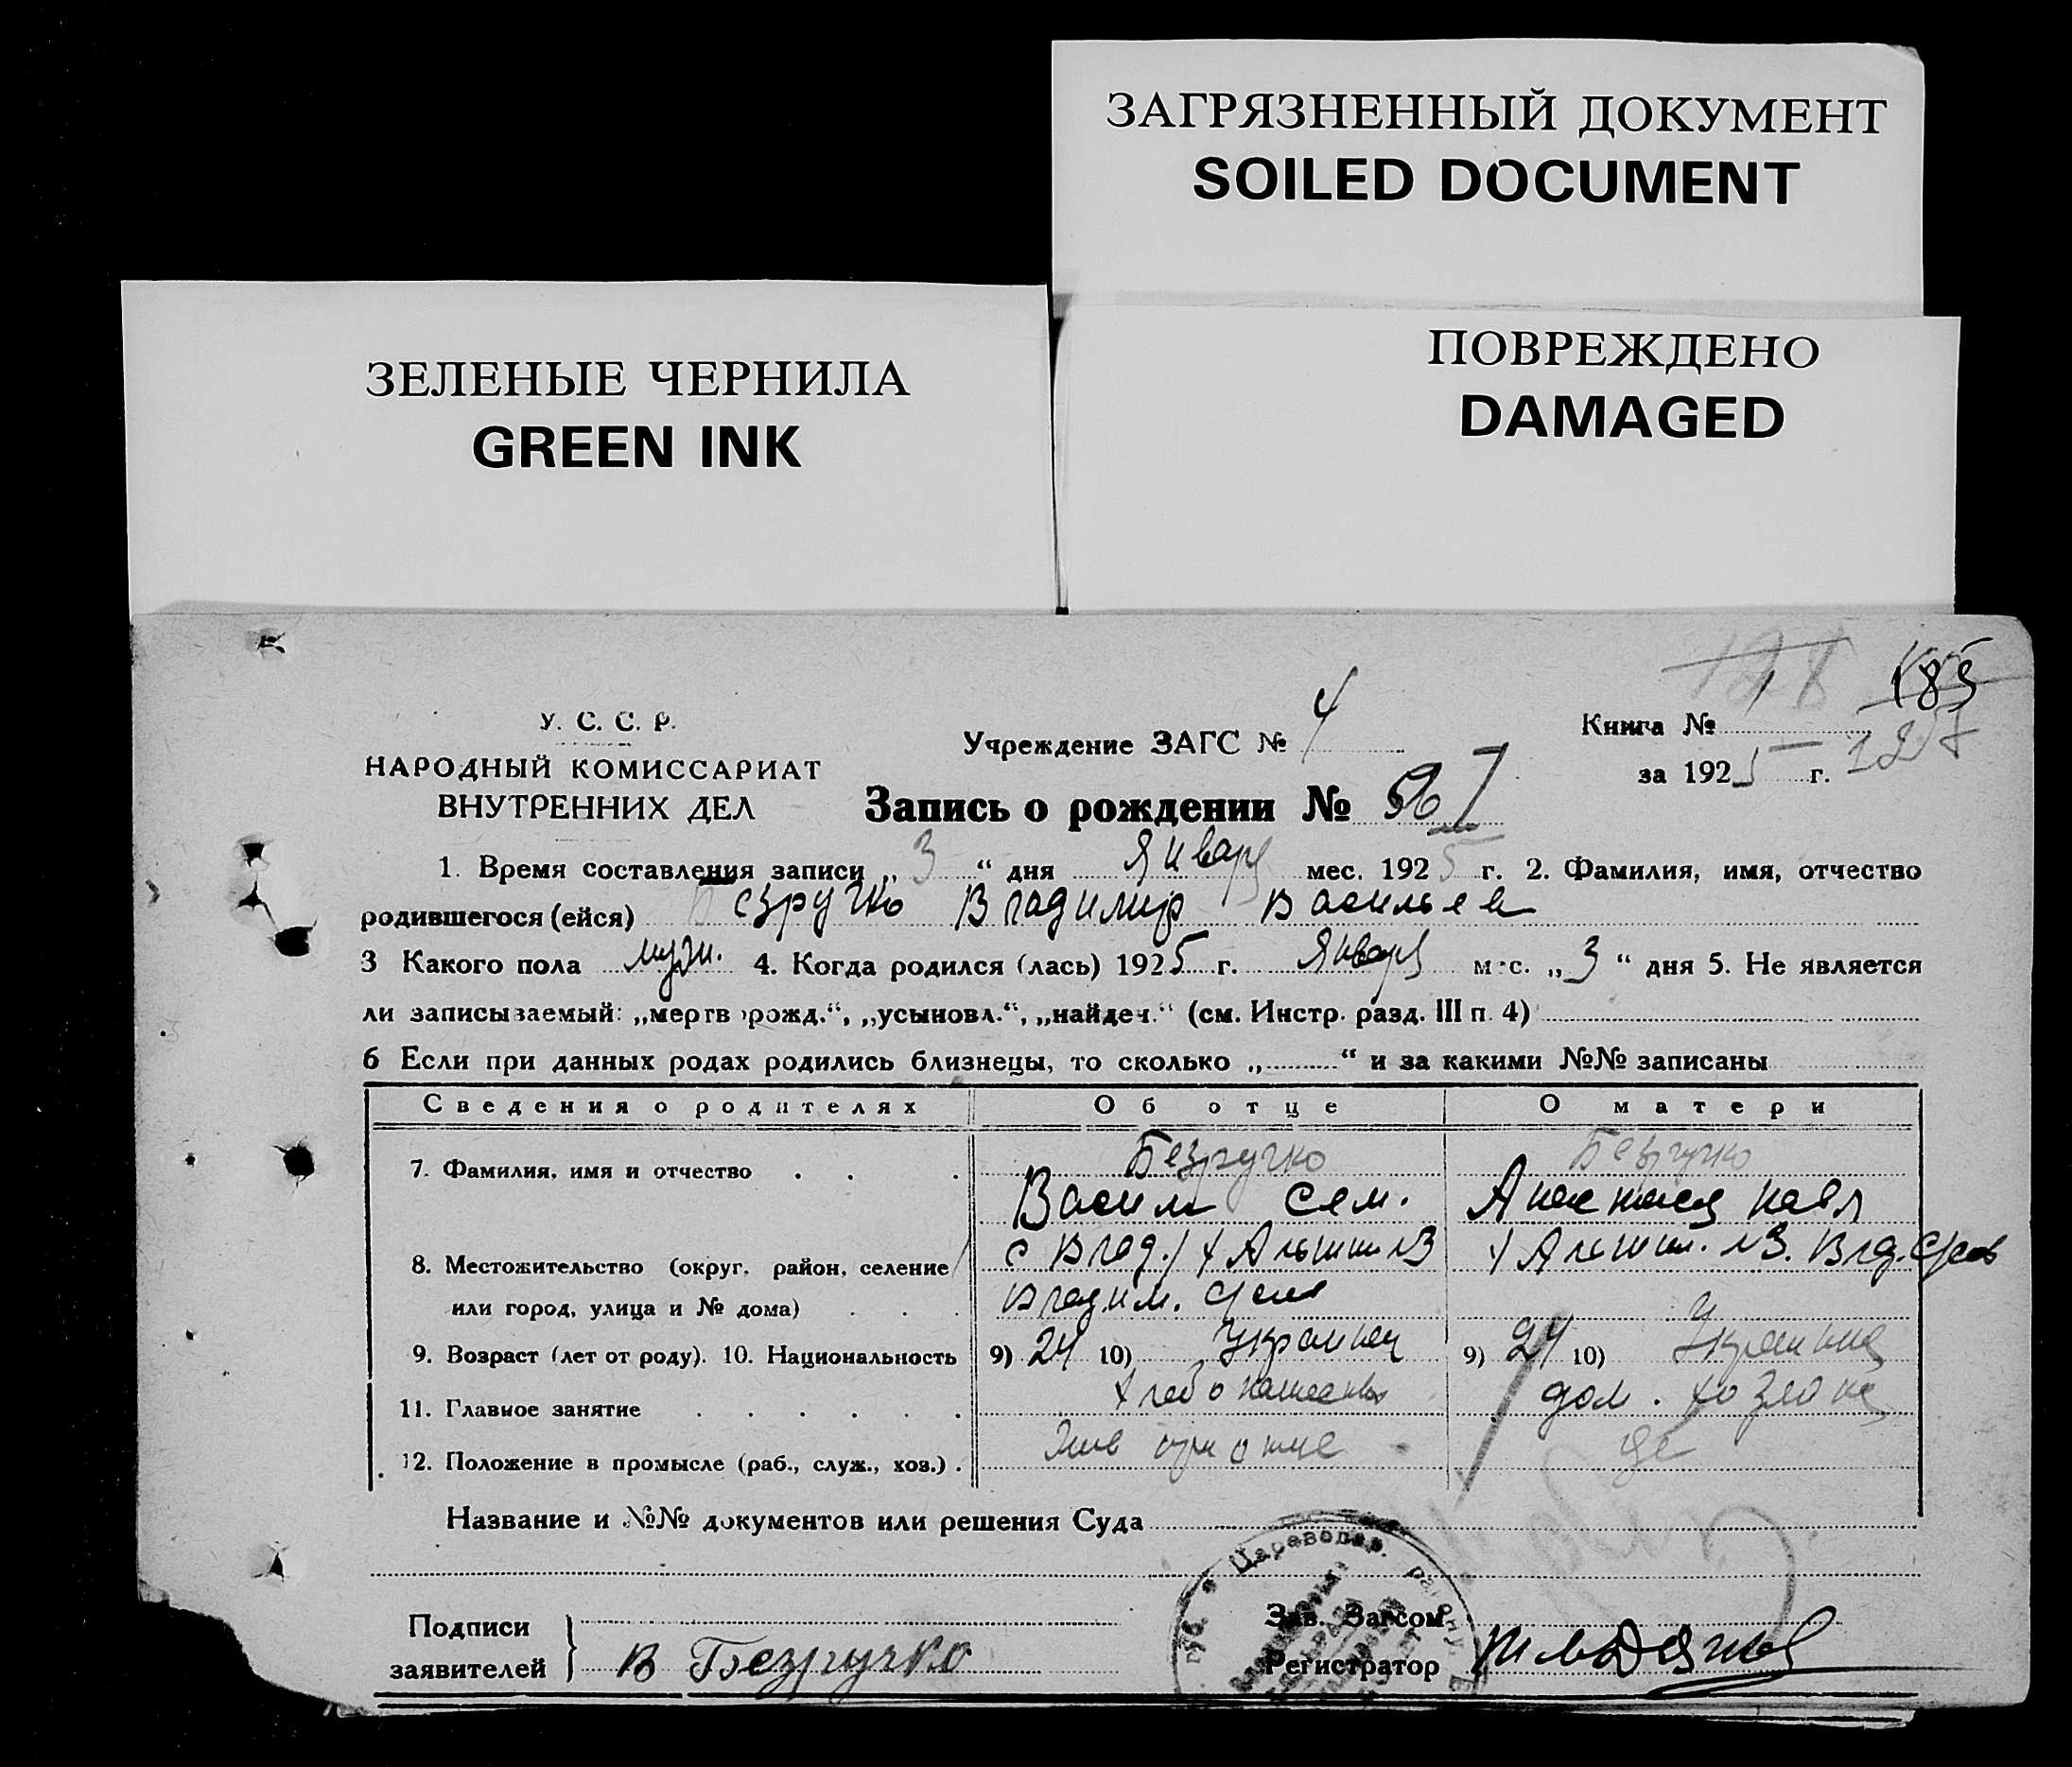 ЗАГРЯЗНЕННЫЙ ДОКУМЕНТ
SOILED DOCUMENT
ЗЕЛЕНЫЕ ЧЕРНИЛА
GREEN INK
ПОВРЕЖДЕНО
DAMAGED
185
У. С. С. Р.
НАРОДНЫЙ КОМИССАРИАТ
ВНУТРЕННИХ ДЕЛ
Учреждение ЗАГС № 4
Книга № 1
за 1925 г.
Запись о рождении №
1. Время составления записи „3“ дня Января мес. 1925 г. 2. Фамилия, имя, отчество
родившегося (ейся) Безручко Владимир Васильев
3 Какого пола муж. 4. Когда родился (лась) 1925 г. Января мес. „3“ дня 5. Не является
ли записываемый: „мертворожд.“, „усыновл.“, „найден.“ (см. Инстр. разд. III п. 4)
6 Если при данных родах родились близнецы, то сколько „ “ и за какими №№ записаны
Сведения о родителях Об отце О матери
Безручко Безручко
7. Фамилия, имя и отчество
Васил Сем. Павл
8. Местожительство (округ, район, селение
или город, улица и № дома)
9. Возраст (лет от роду). 10. Национальность 9) 24 10) Украинец 9) 24 10)
11. Главное занятие дом. хозяйка
12. Положение в промысле (раб., служ., хоз.)
Название и №№ документов или решения Суда
Подписи
заявителей
В Безручко
Зав. Загсом
Регистратор